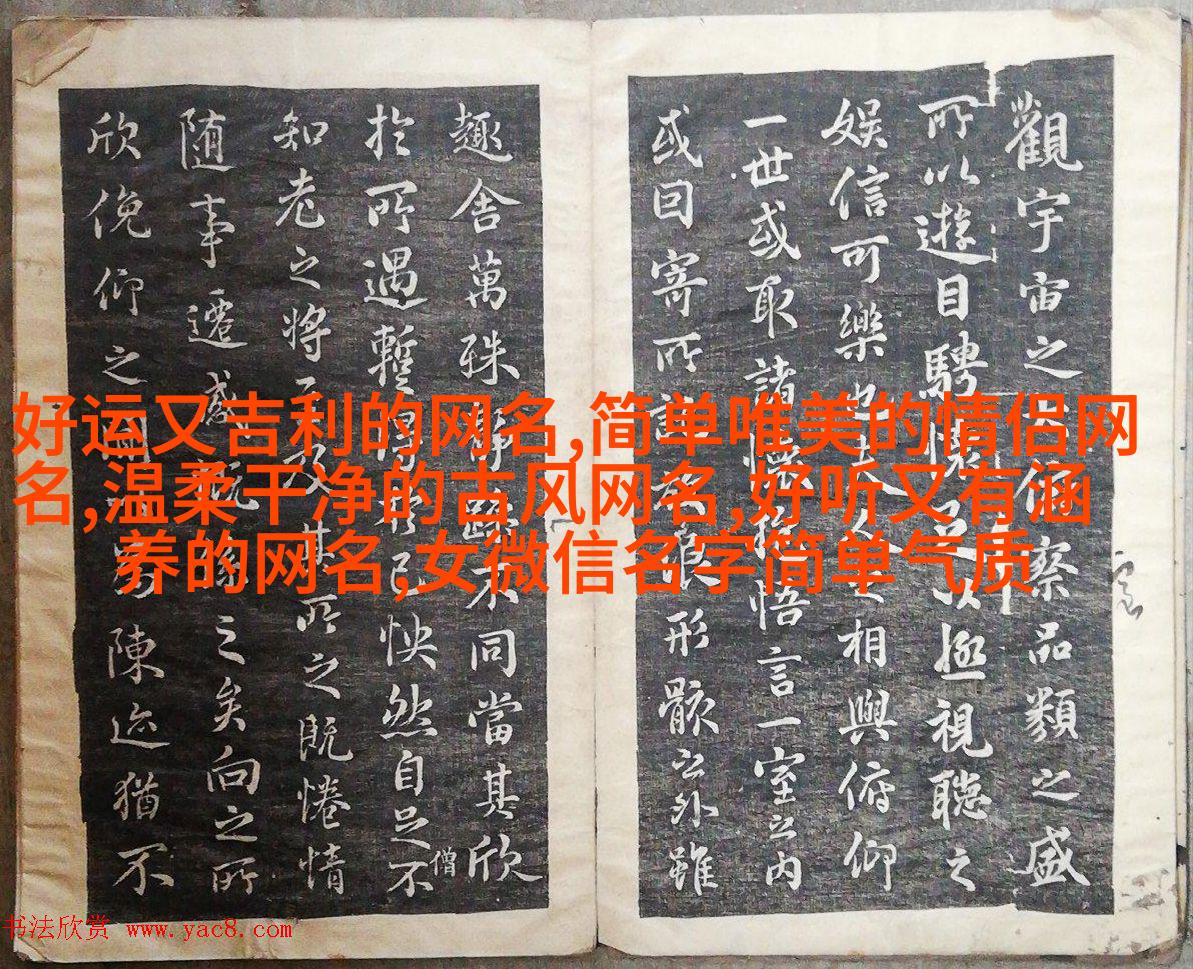 觀宇宙之大俯察品類之盛
所以遊目騁懷足以極視聽之
娛信可樂也夫人之相與俯仰
一世或取諸懷抱悟言一室之内
或因寄所託放浪形骸之外雖
趣舍萬殊靜躁不同當其欣
於所遇暫得於己怏然自足不
僧
知老之將至及其所之既惓情
随事遷感慨係之矣向之所
欣俛仰之間以為陳迹猶不
好运又吉利的网名,简单唯美的情侣网
名,温柔干净的古风网名,好听又有涵
养的网名,女微信名字简单气质
书法欣赏 www.yac8.com